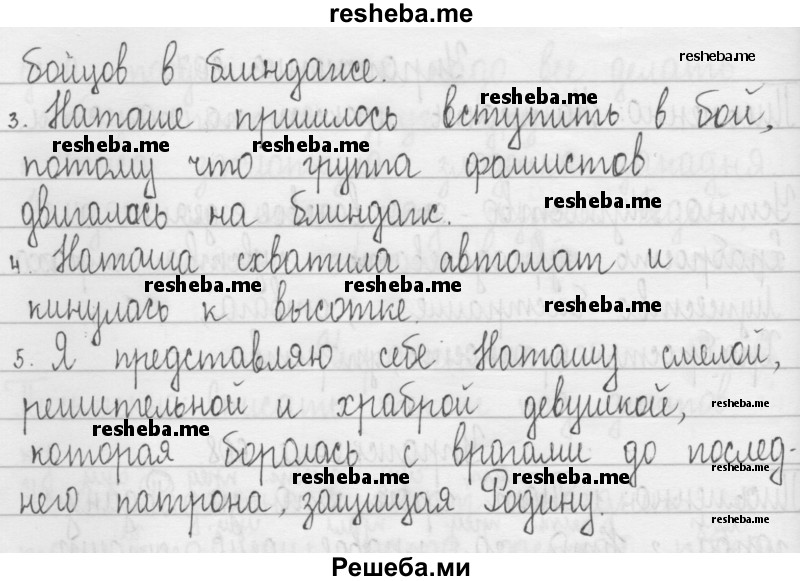 resheba.me
бойцов в блиндаже.
resheba.me
resheba.me
3. Наташе пришлось вступить в бой,
resheba.me resheba.me
потому что группа фашистов
resheba.me
двигалась на блиндаж.
4. Наташа схватила автомат и
resheba.me resheba.me resheba.me
кинулась к высотке.
5. Я представляю себе Наташу смелой,
решительной и храброй девушкой,
resheba.me
resheba.me
которая боролась врагами до послед-
resheba.me resheba.me resheba.me
него патрона, защищая Родину.
resheba.me
Решеба.ми